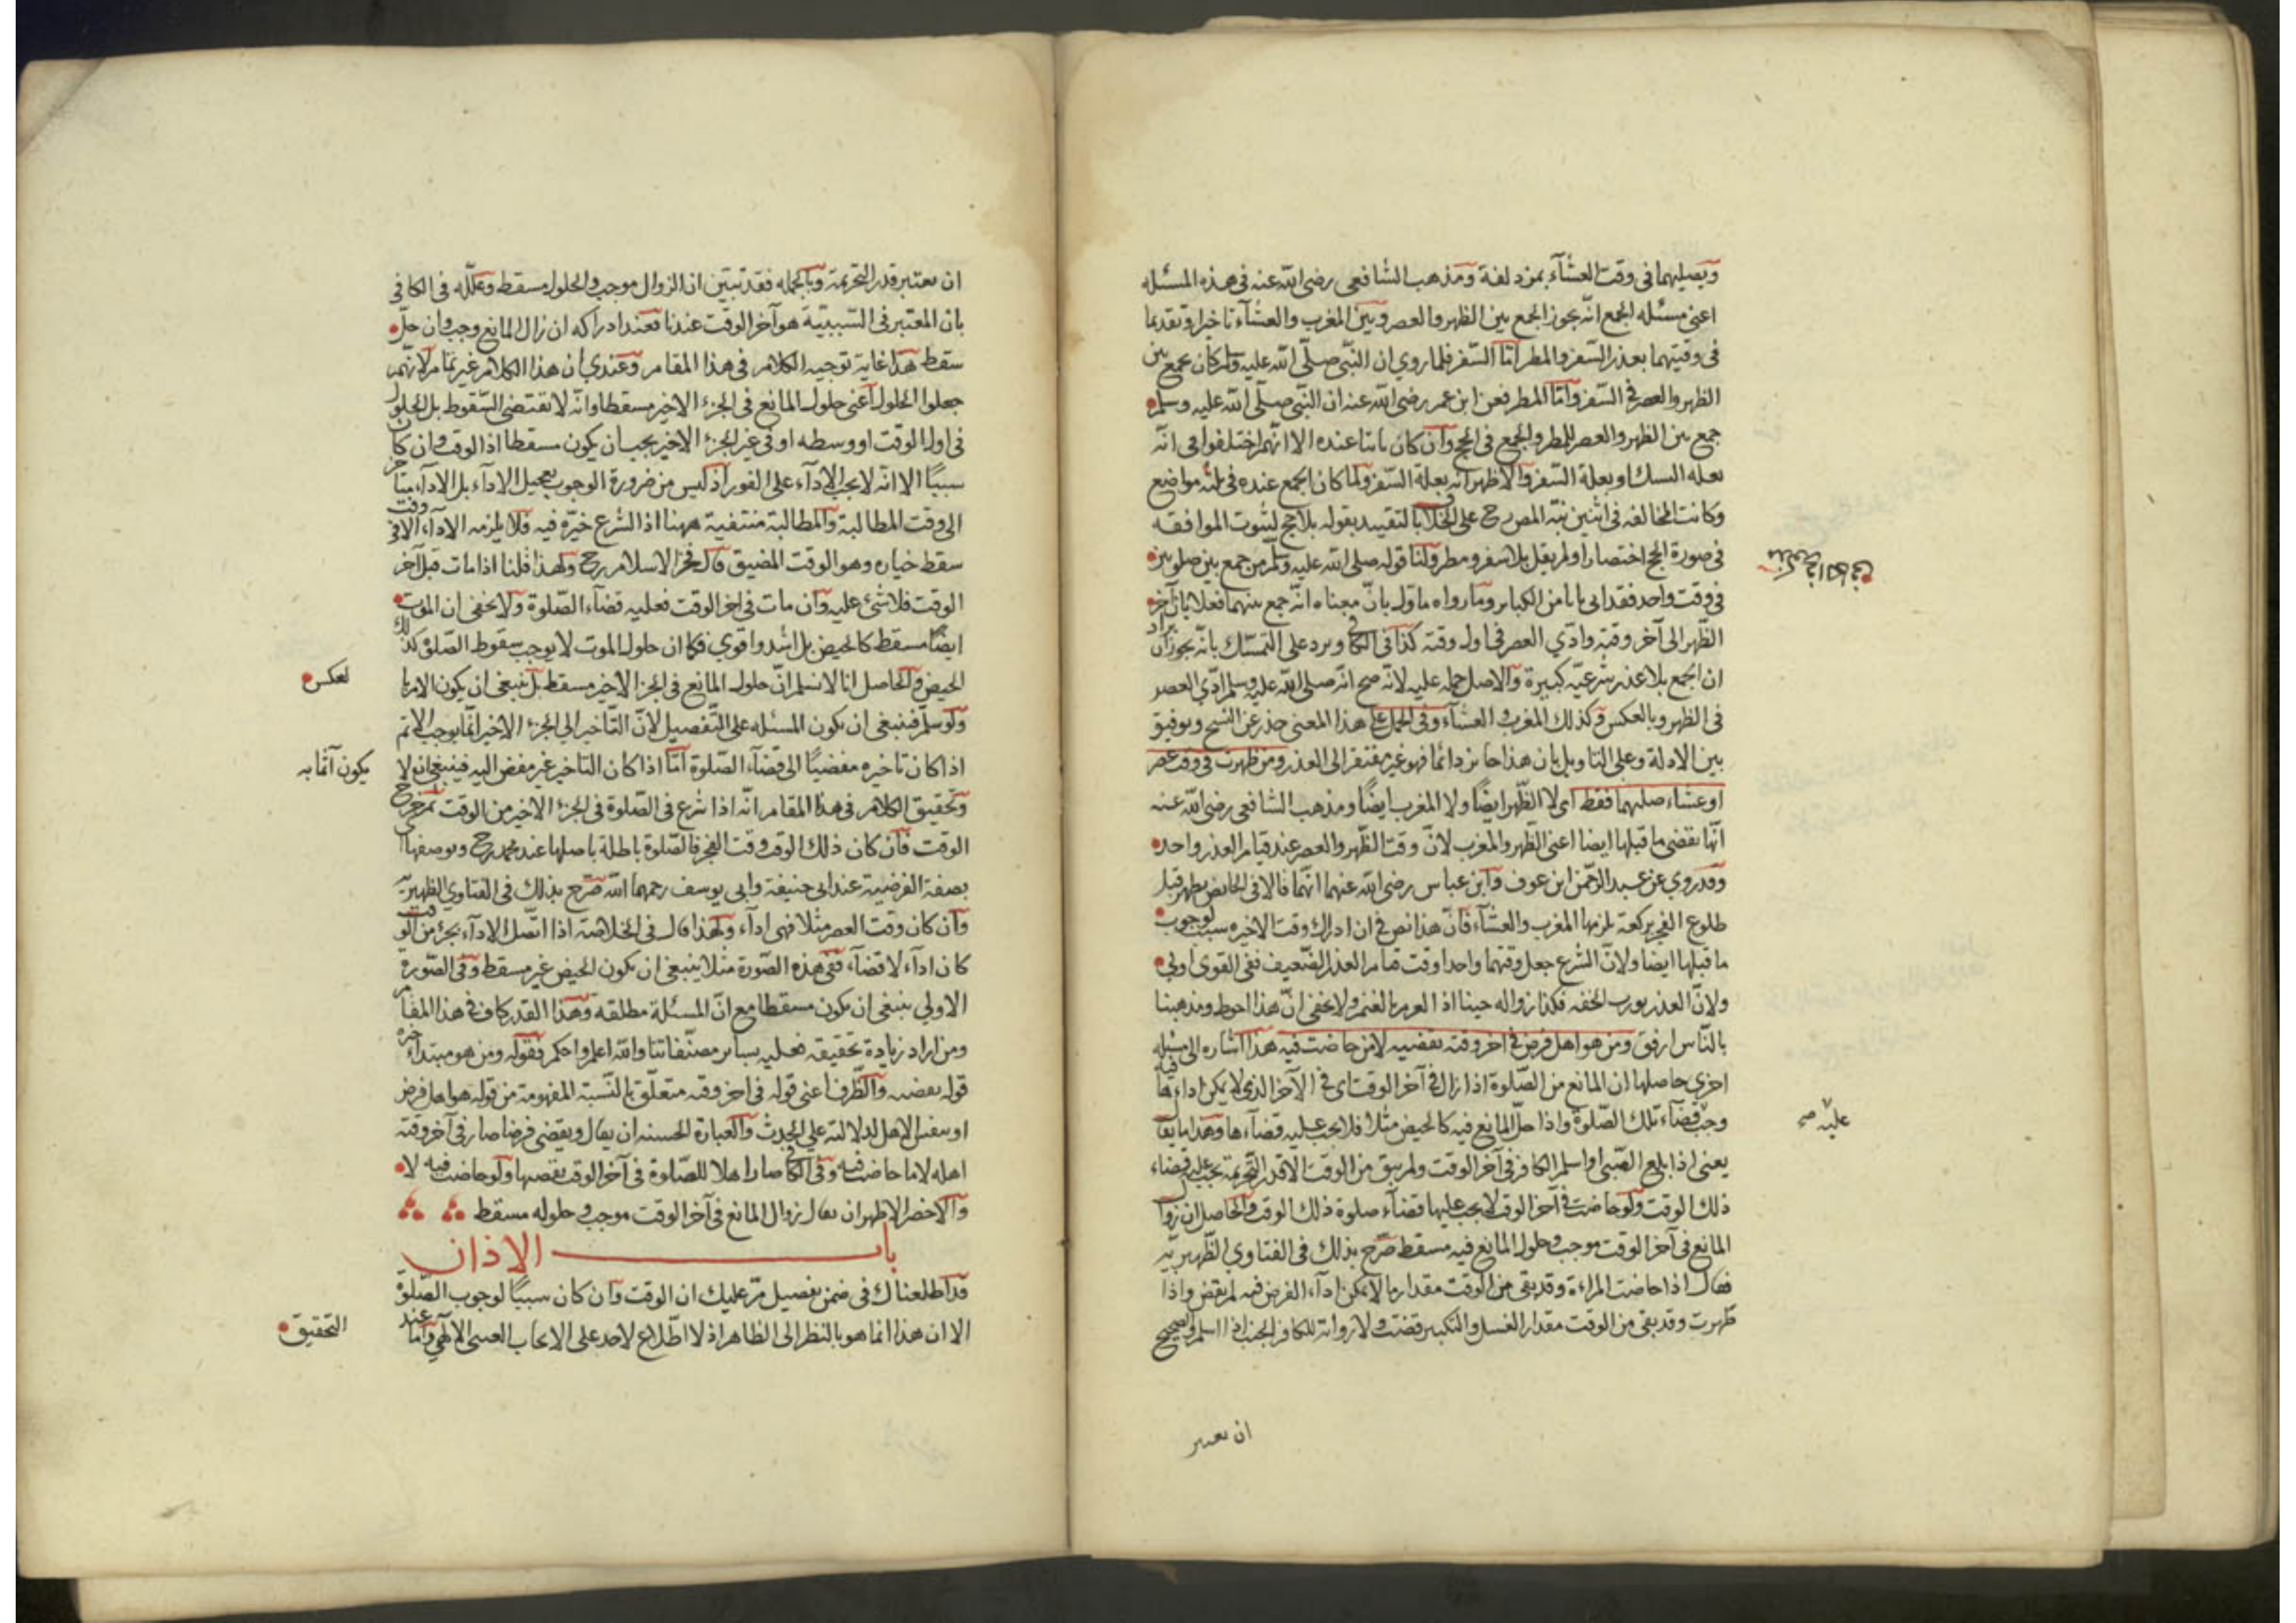 ويصليهما فى وقت العشآء بمزدلفة ومذهب الشافعى رضى الله عنه فى هذه المسئله
اعنى مسئله الجمع انه يجوز الجمع بين الظهر والعصر وبين المغرب والعشآء تاخيرا وتقديما
فى وقتيهما بعذر السفر والمطر امّا السّفر فلما روي ان النبّى صلّى الله عليه وسلم كان يجمع بين
الظهر والعصر فى السّفر وامّا المطر فعن ابن عمر رضى الله عنه ان النبّى صلّى الله عليه وسلم
جمع بين الظهر والعصر للمطر والجمع فى الحج وان كان ثابتا عنده الا انهم اختلفوا فى انّه
بعلة النسك او بعلة السّفر والاظهر انه بعلة السّفر ولما كان الجمع عنده فى ثلثه مواضع
وكانت المخالفه فى اثنين نبّه المص رح على الخلاف بالتقييد بقوله بلا حج لثبوت الموافقه
فى صورة الحج اختصارا ولم يقل بلا سفر ومطر ولنا قوله صلى الله عليه وسلّم من جمع بين صلوتين
فى وقت واحد فقد اتى بابا من الكبائر وما رواه ماوّل بانّ معناه انّه جمع بينهما فعلا بان اخر
الظّهر الى آخر وقته وادّي العصر فى اول وقته كذا فى الكافى ويرد على التمسّك بانّه يجوز ان يراد
ان الجمع بلا عذر شرعيّه كبيرة والاصل حمله عليه لانّه صح انّه صلى الله عليه وسلم ادّي العصر
فى الظهر وبالعكس وكذلك المغرب والعشآء وفى الحمل على هذا المعنى حذر عن النسخ وتوفيق
بين الادلة وعلى التاويل بان هذا جائز دائما فهو غير مفتقر الى العذر ومن طهرت فى وقت عصر
او عشاء صلتهما فقط اى لا الظّهر ايضًا ولا المغرب ايضًا ومذهب الشافعى رضى الله عنه
انّها تقضى ما قبلها ايضا اعنى الظّهر والمغرب لانّ وقت الظّهر والعصر عند قيام العذر واحد
وقد روي عن عبد الرّحمن ابن عوف وابن عباس رضى الله عنهما انهما قالا فى الحائض تطهر قبل
طلوع الفجر بركعة يلزمها المغرب والعشآء فانّ هذا نص فى ان ادراك وقت الاخيره سبب لوجوب
ما قبلها ايضا ولانّ الشرع جعل وقتهما واحدا وقت قيام العذر الضّعيف ففى القوى اولى
ولانّ العذر يورث الخفه فكذا زواله حينا اذ الغرم بالغنم ولا يخفى انّ هذا احوط ومذهبنا
بالنّاس ارفق ومن هو اهل فرض فى اخر وقته يقضيه لا من حاضت فيه هذا اشاره الى مسئله
اخري حاصلها ان المانع من الصّلوة اذا زال فى آخر الوقت اى فى الآخر الذى لا يمكن اداءها فيه
وجب قضآء تلك الصّلوة واذا حلّ المانع فيه كالحيض مثلا فلا يجب عليه قضآءها وهذا ما يقال
عليه صح
يعنى اذا بلغ الصّبى او اسلم الكافر فى آخر الوقت ولم يبق من الوقت الا قدر التّحريمة يجب عليه قضاء
ذلك الوقت ولو حاضت فى آخر الوقت لا يجب عليها قضآء صلوة ذلك الوقت والحاصل ان زوال
المانع فى آخر الوقت موجب وحلول المانع فيه مسقط صرّح بذلك فى الفتاوي الظّهيريّه
فقال اذا حاضت المراءة وقد بقى من الوقت مقدار ما لا يمكن ادآء الفرض فيه لم تقض واذا
طهرت وقد بقى من الوقت مقدار الغسل والتكبير قضت ولا رواية للكافر الجنب اذا اسلم والصحيح
ان يعتبر
ان يعتبر قدر التحريمة وبالجمله فقد تبيّن ان الزوال موجب والحلول مسقط وعلّله فى الكافى
بان المعتبر فى السّببيّة هو آخر الوقت عندنا فعند ادراكه ان زال المانع وجب وان حلّ
سقط هذا غاية توجيه الكلام فى هذا المقام وعندي ان هذا الكلام غير تمام لانّهم
جعلوا الحلول اعنى حلول المانع فى الجزء الاخير مسقطا وانّه لا يقتضى السّقوط بل الحلول
فى اول الوقت او وسطه او فى غير الجزء الاخير يجب ان يكون مسقطا اذ الوقت وان كان
سببًا الا انّه لا يجب الادآء على الفور اذ ليس من ضرورة الوجوب تعجيل الادآء بل الادآء متاخر
الى وقت المطالبة والمطالبة منتفية ههنا اذ الشرع خيّره فيه فلا يلزمه الادآء الا فى وقت
سقط خياره وهو الوقت المضيق قال فخر الاسلام رح ولهذا قلنا اذا مات قبل آخر
الوقت فلا شئ عليه وان مات فى اخر الوقت فعليه قضآء الصّلوة ولا يخفى ان الموت
ايضًا مسقط كالحيض بل اشد واقوي فكما ان حلول الموت لا يوجب سقوط الصّلوة كذلك
الحيض والحاصل انا لا نسلم انّ حلول المانع فى الجزء الاخير مسقط بل ينبغى ان يكون الامر با
لعكس
ولو سلّم فينبغى ان يكون المسئله على التّفصيل لانّ التّأخير الى الجزء الاخير انّما يوجب الاثم
اذا كان تاخيره مفضيًا الى قضآء الصّلوة امّا اذا كان التاخير غير مفض اليه فينبغى انه لا
يكون آثما به
وتحقيق الكلام فى هذا المقام انّه اذا شرع فى الصّلوة فى الجزء الاخير من الوقت ثمّ خرج
الوقت فان كان ذلك الوقت وقت الفجر فالصّلوة باطلة باصلها عند محمد رح وبوصفها
بصفة الفرضيه عند ابى حنيفة وابى يوسف رحمهما الله صرّح بذلك فى الفتاوي الظّهيريّه
وان كان وقت العصر مثلا فهى ادآء ولهذا قال فى الخلاصة اذا اتّصل الادآء بجزء من الوقت
كان ادآء لا قضآء ففى هذه الصّورة مثلا ينبغى ان يكون الحيض غير مسقط وفى الصّورة
الاولي ينبغى ان يكون مسقطا مع انّ المسئلة مطلقة وهذا القدر كاف فى هذا المقام
ومن اراد زيادة تحقيقه فعليه بسائر مصنّفاتنا والله اعلم واحكم فقوله ومن هو مبتداء خبره
قوله يقضيه والظّرف اعنى قوله فى اخر وقته متعلّق بالنّسبة المفهومة من قوله هو اهل فرض
او بنفس الاهل لدلالته على الحدث والعبارة الحسنه ان يقال ويقضى فرضا صار فى آخر وقته
اهله لا ما حاضت فيه وفى الكافى صار اهلا للصّلوة فى آخر الوقت يقضيها ولو حاضت فيه لا
والاخضر الاظهر ان يقال زوال المانع فى آخر الوقت موجب وحلوله مسقط
باب الاذان
قد اطلعناك فى ضمن تفصيل مرّ عليك ان الوقت وان كان سببًا لوجوب الصّلوة
الا ان هذا انما هو بالنظر الى الظاهر اذ لا اطّلاع لاحد على الايجاب الغيبى الالهى وامّا عند
التحقيق